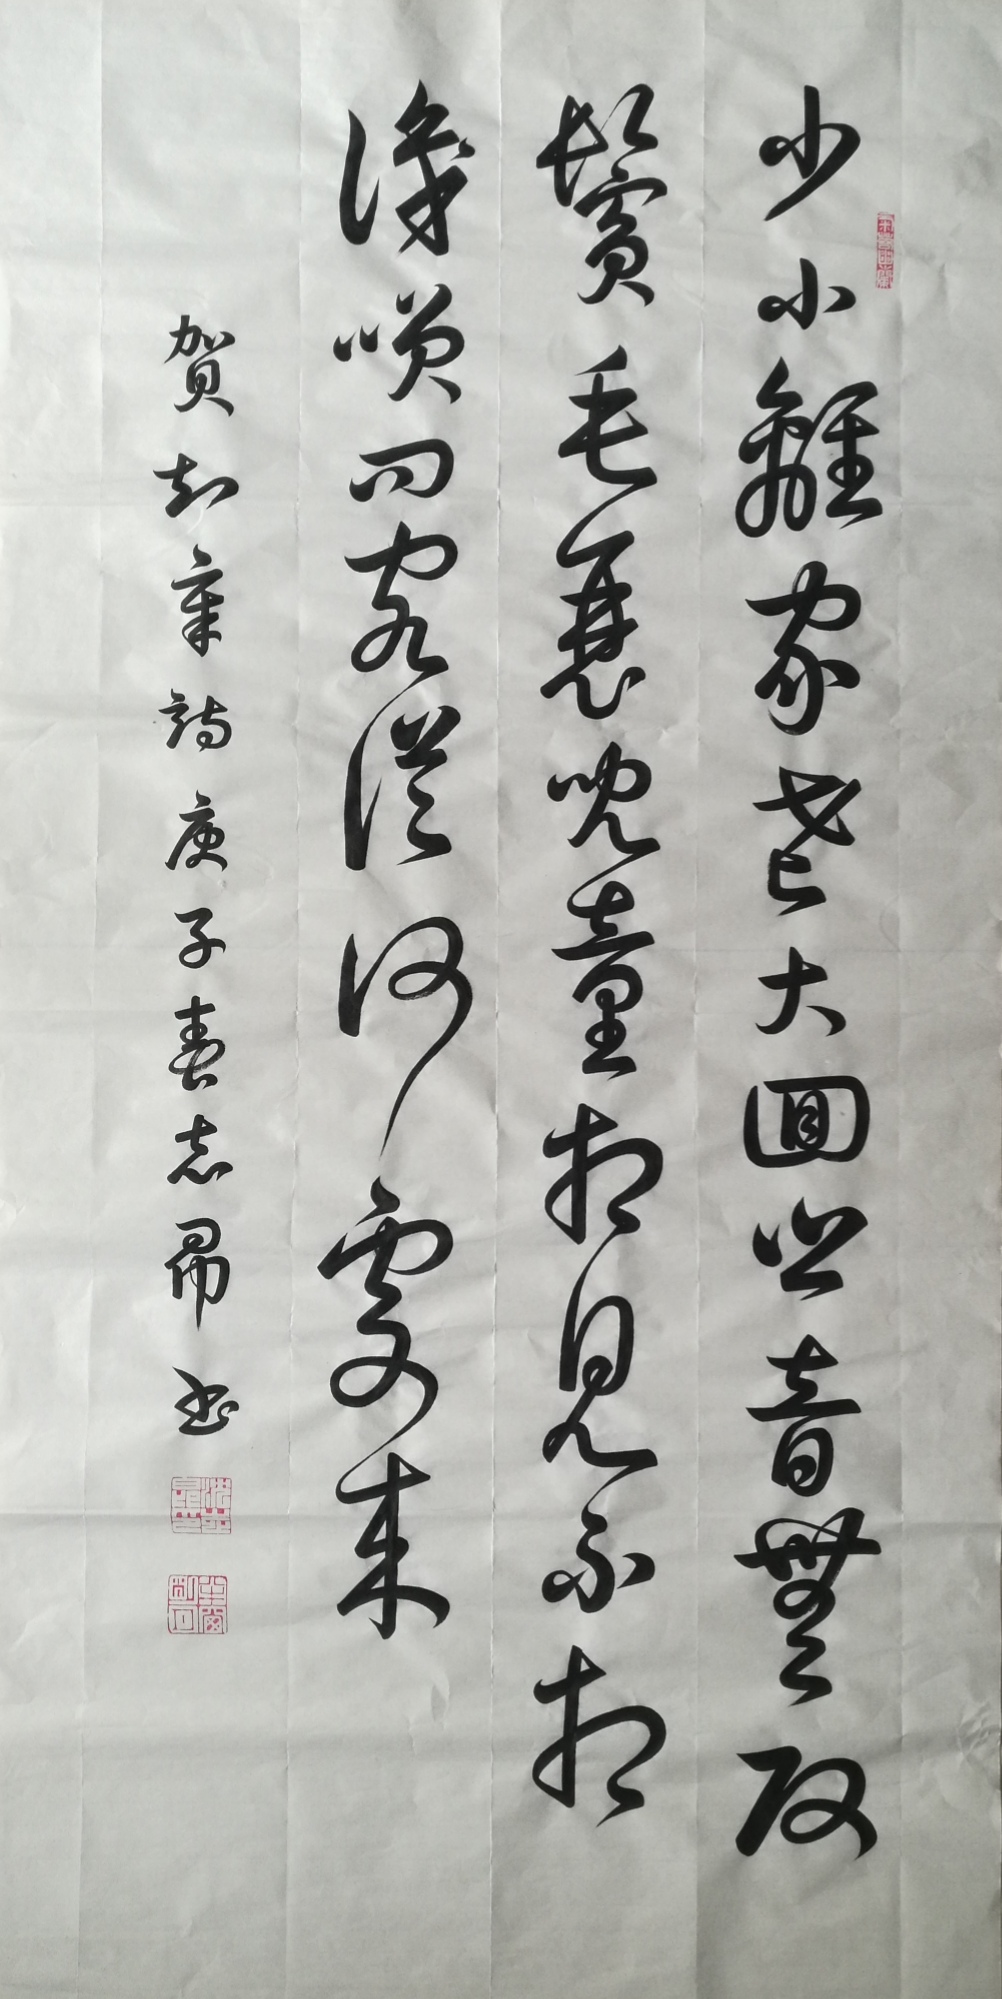 少小離家老大回鄉音無改
鬢毛衰兒童相見不相
識咲問客從何處來
賀知章詩庚子春志昂書